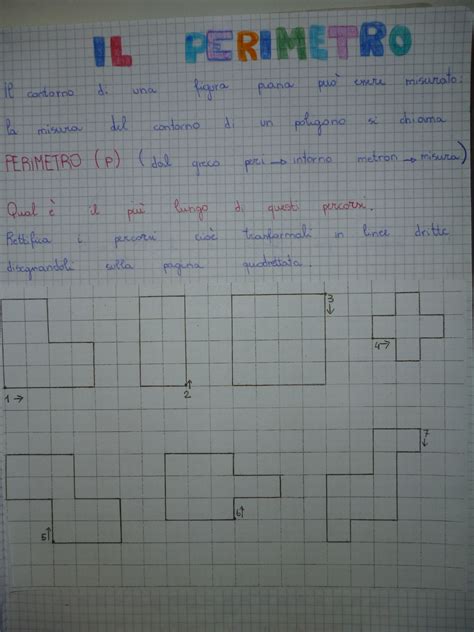 IL PERIMETRO
Il contorno di una figura piana può essere misurato:
la misura del contorno di un poligono si chiama
PERIMETRO (P) (dal greco peri → intorno metron → misura)
Qual è il più lungo di questi percorsi.
Rettifica i percorsi cioè trasformali in linee dritte
disegnandoli sulla pagina quadrettata.
1→ 2↑ 3↓ 4→
5↑ 6↑ 7↓